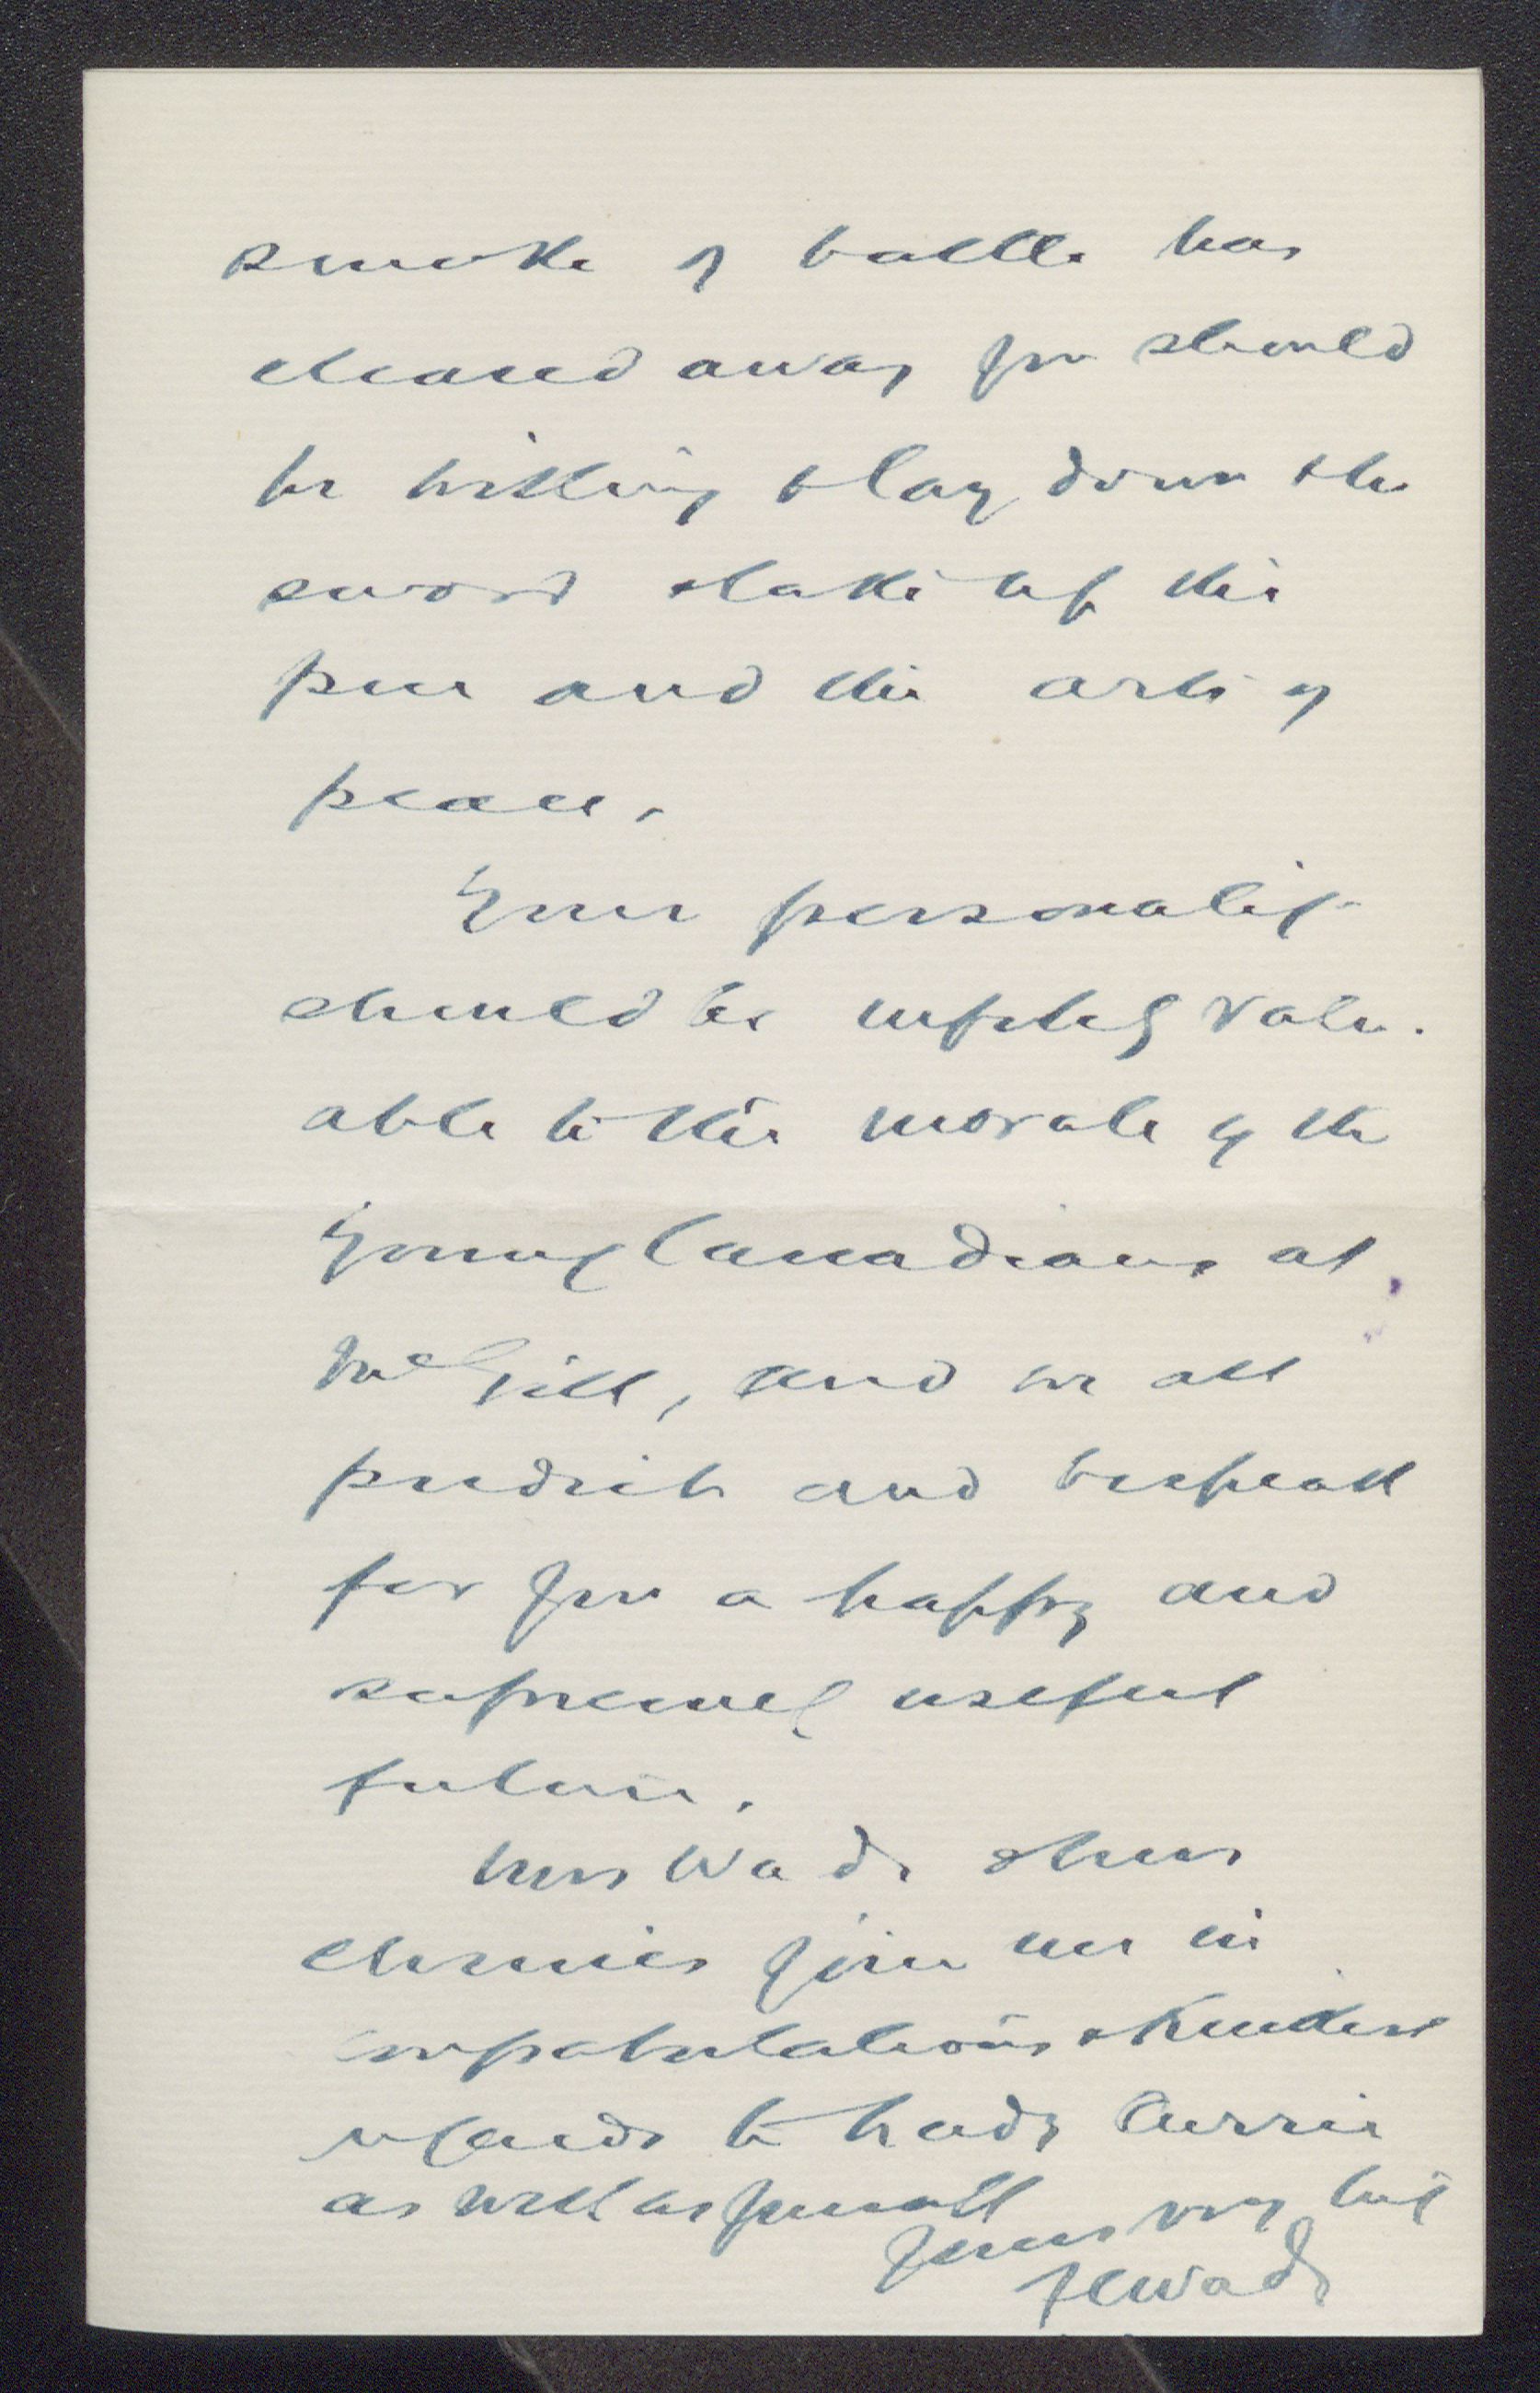 smoke of battle has
cleared away you should
be willing to lay down the
sword & take up the
pen and the arts of
peace.
Your personality
should be infinitely valu-
able to the morale of the
young Canadians at
McGill, and we all
predict and bespeak
for you a happy and
supremely useful
future.
Mrs Wade & our
join me in
congratulations & kindest
regards to Lady Currie
as well as yourself
Yours very truly
FCWade